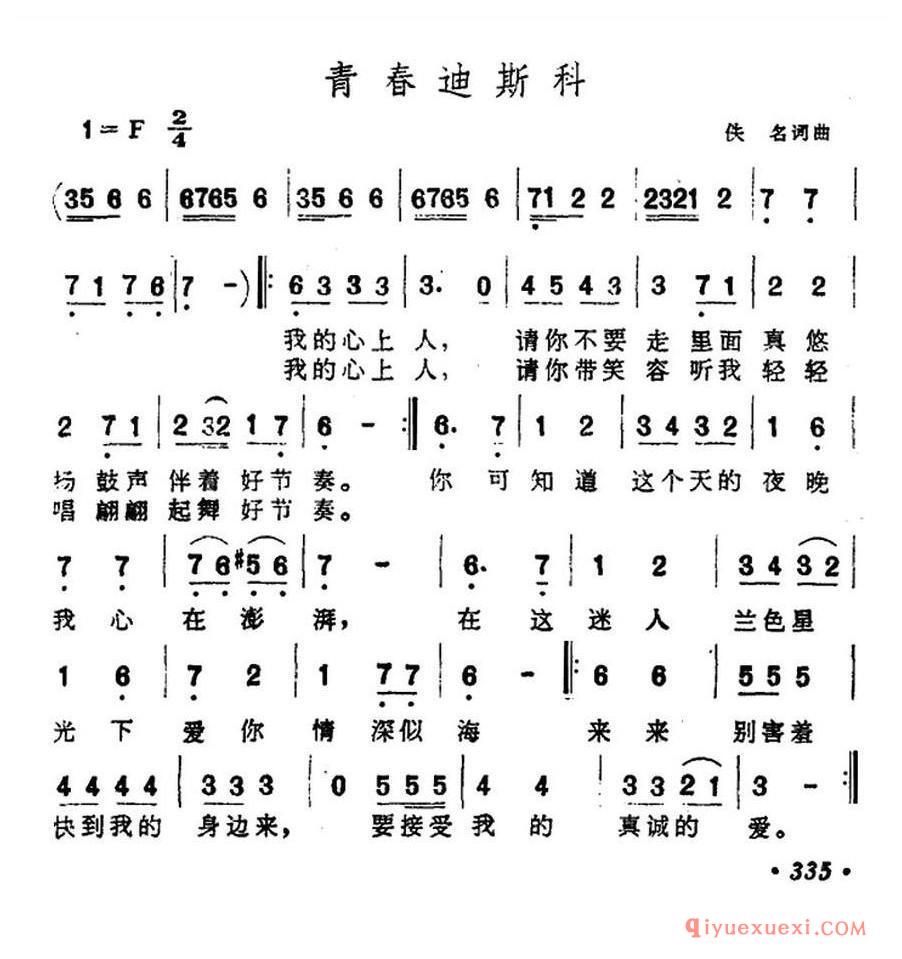 青春迪斯科
1=F 2/4
佚 名词曲
(35 6 6 | 6765 6 | 35 6 6 | 6765 6 | 71 2 2 | 2321 2 | 7 7 |
71 76 | 7 -) |: 63 33 | 3. 0 | 45 43 | 3 71 | 2 2 |
我的心上人, 请你不要走里面真悠
我的心上人, 请你带笑容听我轻轻
2 71 | 2 32 17 | 6 - :| 6. 7 | 1 2 | 34 32 | 1 6 |
扬鼓声伴着好节奏。 你可知道这个天的夜晚
唱翩翩起舞好节奏。
7 7 | 76 #56 | 7 - | 6. 7 | 1 2 | 34 32 |
我心在澎湃, 在这迷人兰色星
1 6 | 7 2 | 1 77 | 6 - |: 6 6 | 55 5 |
光下爱你情深似海 来来别害羞
44 44 | 33 3 | 0 555 | 4 4 | 33 21 | 3 - :|
快到我的身边来, 要接受我的真诚的爱。
·335·
qiyuexuexi.com